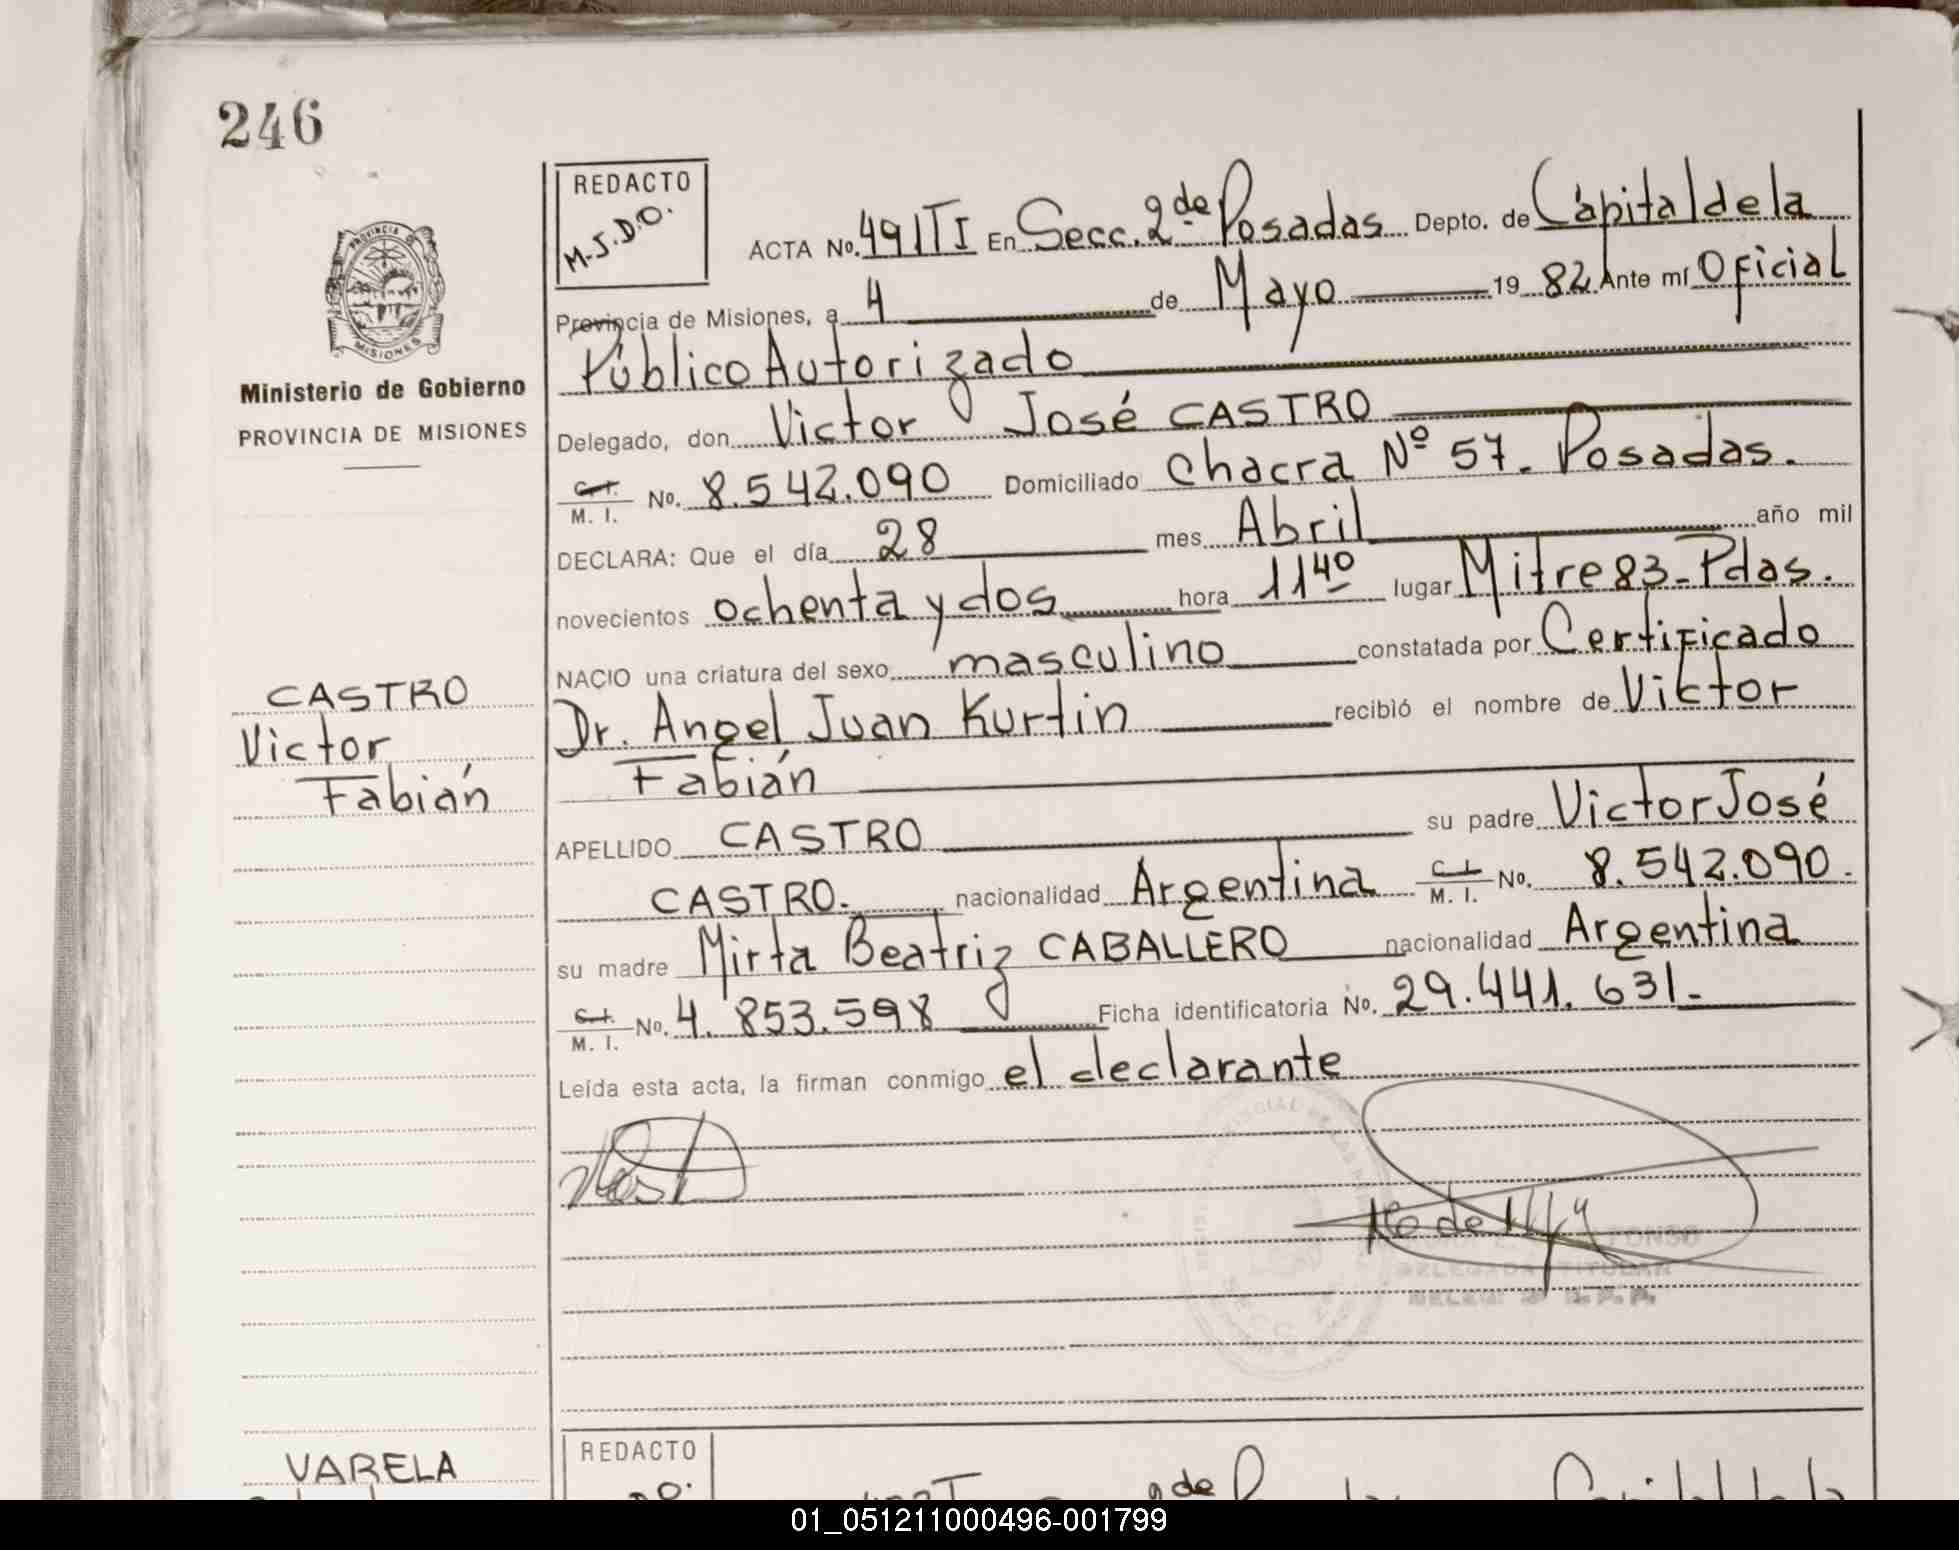 246
REDACTO
M.J.D.O.
ACTA No. 491TI En Secc. 2da de Posadas Depto. de Capital de la
Provincia de Misiones, a 4 de Mayo 1982 Ante mí Oficial
Público Autorizado
PROVINCIA DE
MISIONES
Ministerio de Gobierno
PROVINCIA DE MISIONES
Delegado, don Victor José CASTRO
C.I. M. I. No. 8.542.090 Domiciliado Chacra Nº 57. Posadas.
DECLARA: Que el día 28 mes Abril año mil
novecientos ochenta y dos hora 11 40 lugar Mitre 83 - Pdas.
NACIO una criatura del sexo masculino constatada por Certificado
Dr. Angel Juan Kurtin recibió el nombre de Victor
Fabián
CASTRO
Victor
Fabián
APELLIDO CASTRO su padre Victor José
CASTRO. nacionalidad Argentina C.I. M. I. No. 8.542.090.
su madre Mirta Beatriz CABALLERO nacionalidad Argentina
C.I. M. I. No. 4.853.598 Ficha identificatoria No. 29.441.631-
Leída esta acta, la firman conmigo el declarante
DELEGADA TITULAR
VARELA
REDACTO
01_051211000496-001799